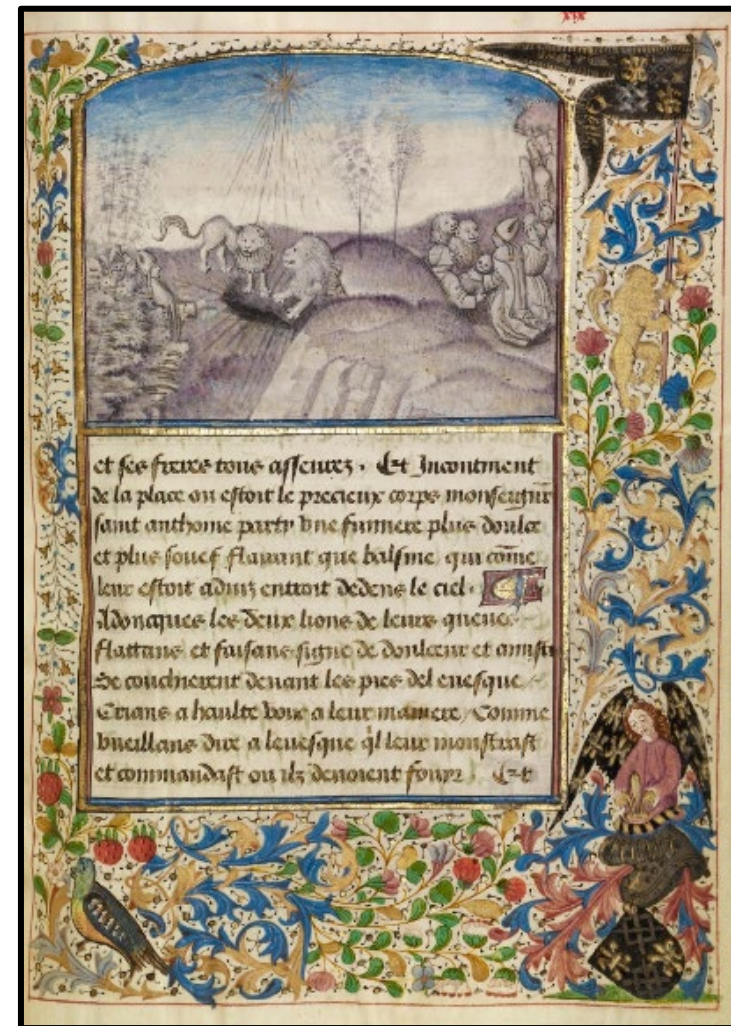 xix
et ses freres tous asseurez. Et Incontinent
de la place ou estoit le precieux corps monseigneur
saint anthoine party vne fumiere plus doulce
et plus souef flairant que balsme qui cōme
leur estoit aduiz entroit dedens le ciel.
Adoncques les deux lions de leurs queues
flattans et faisans signe de doulceur et amistie
Se coucherent deuant les pies del euesque
Crians a haulte voix a leur maniere / Comme
vueillans dire a leuesque ql leur monstrast
et commandast ou ilz deuoient fouyr. Et